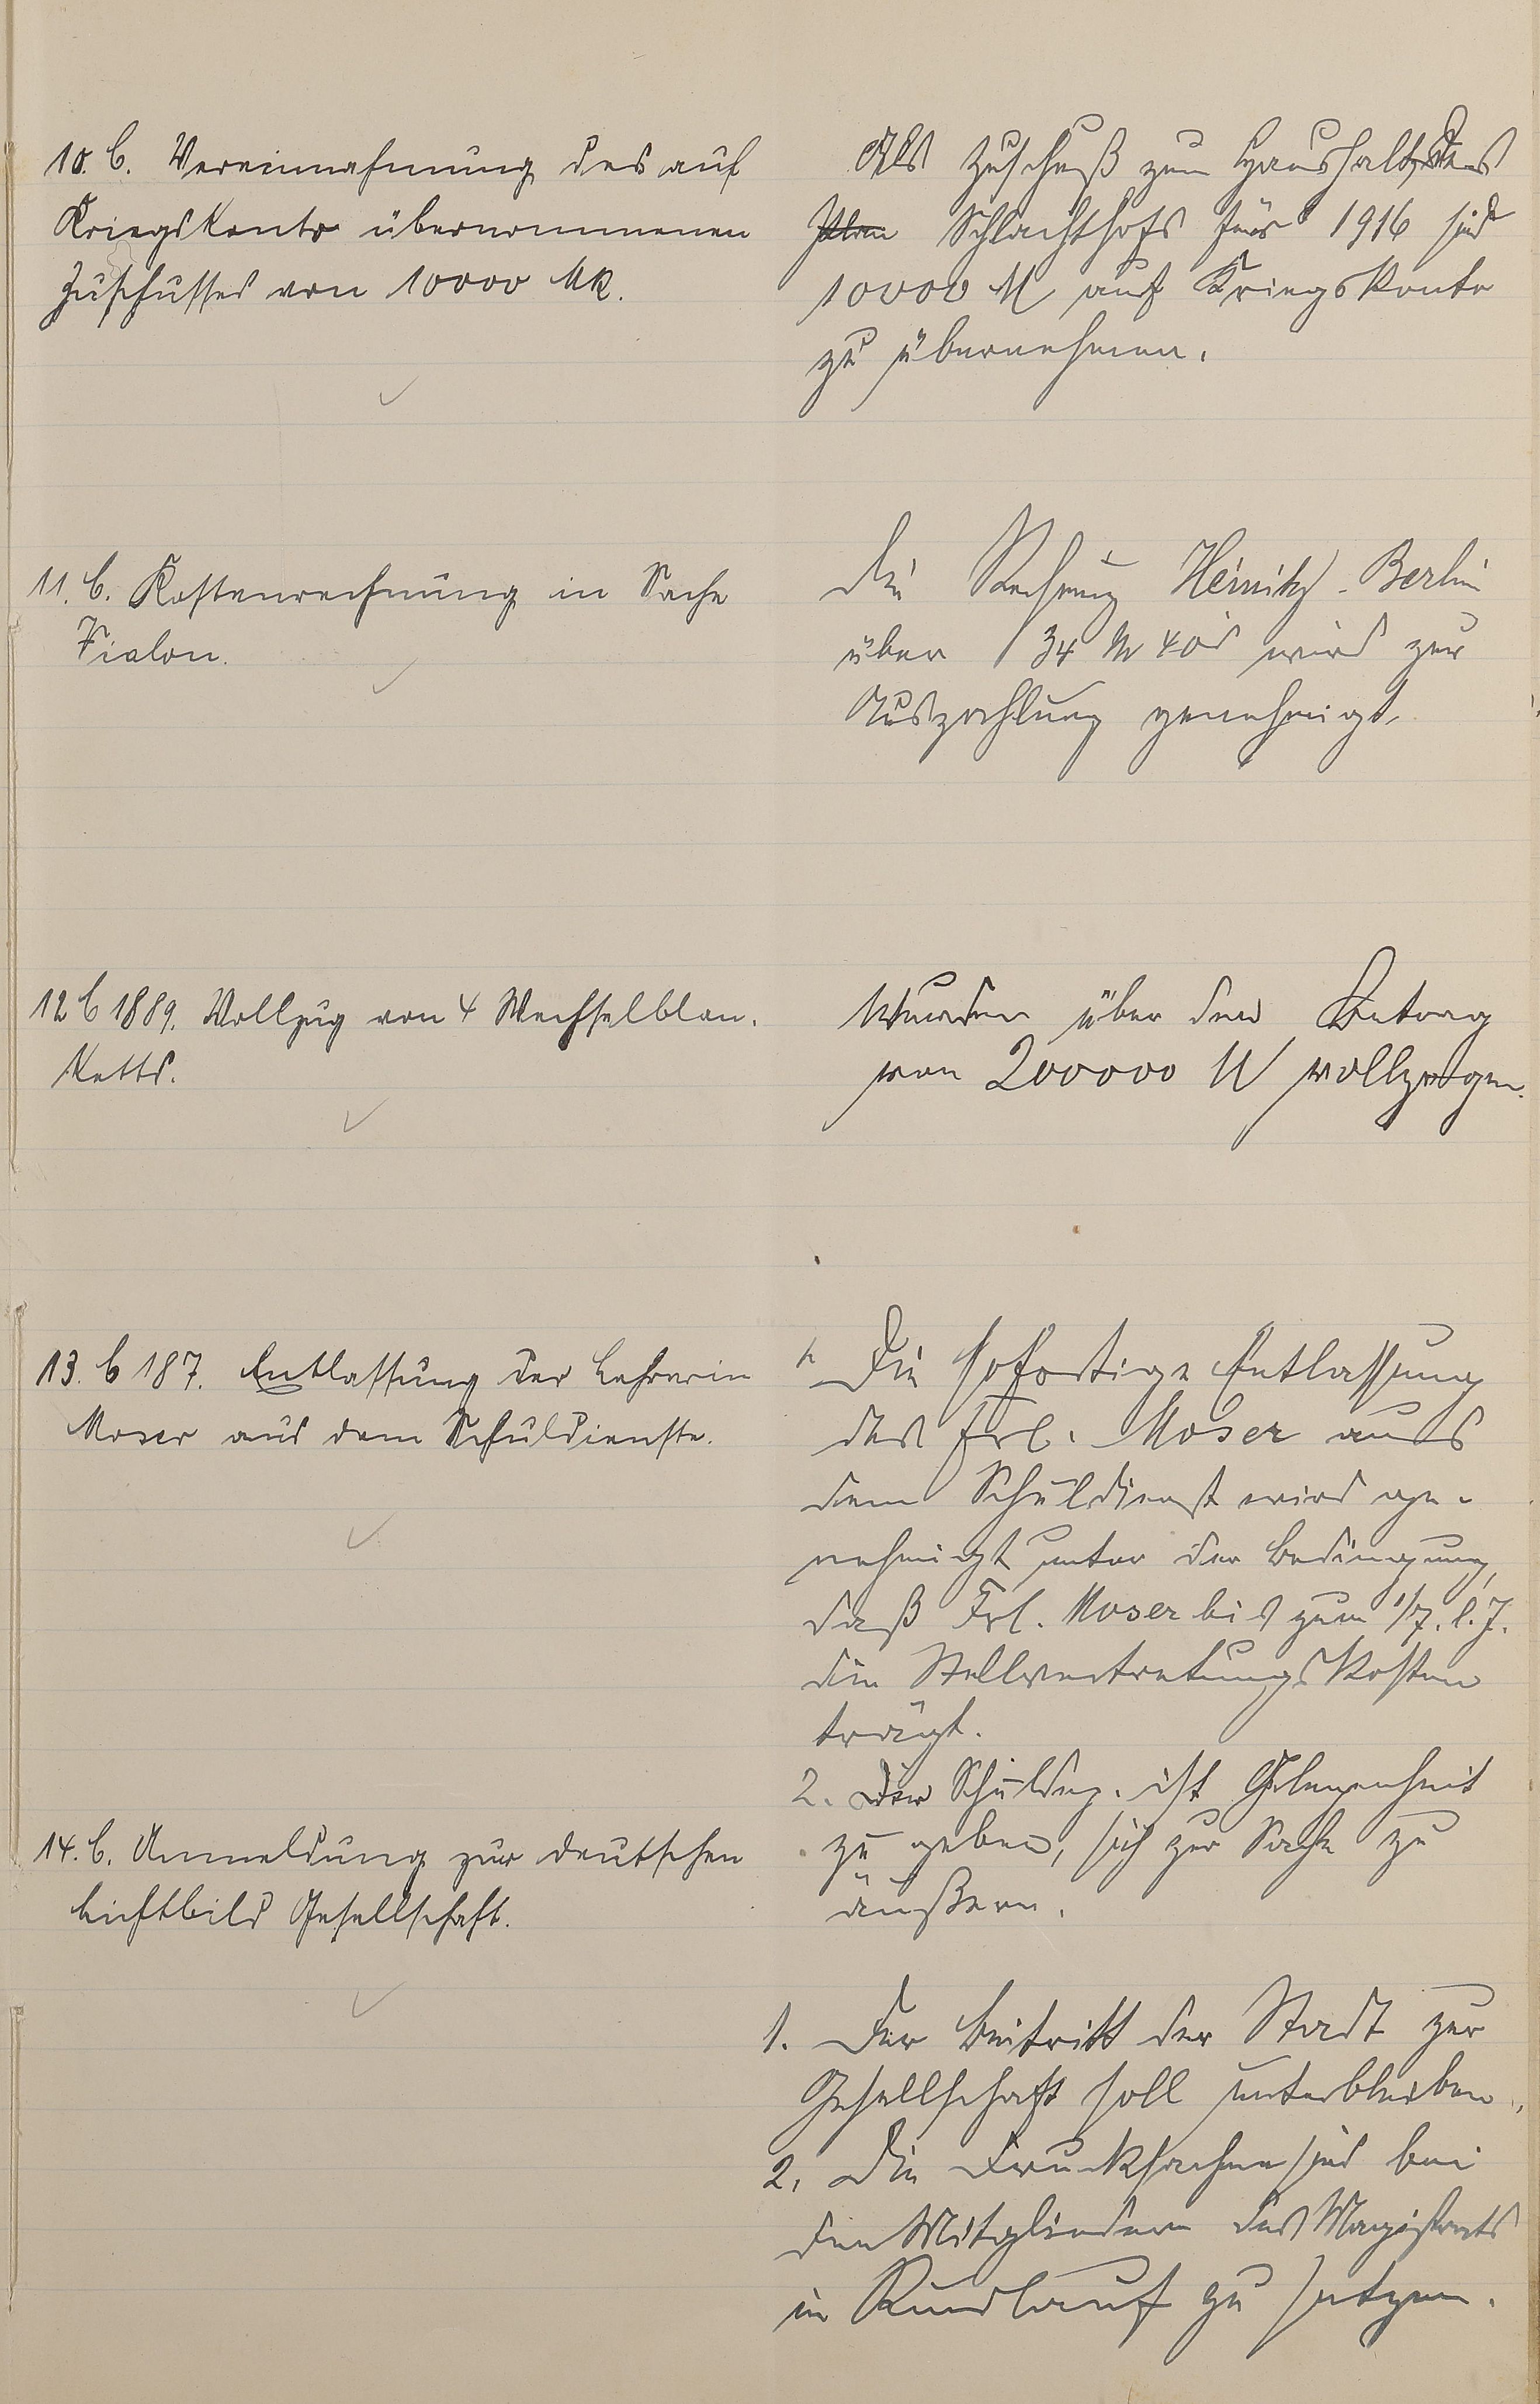 10. C. Vereinnahmung des auf
Kriegskonto übernommenen
Zuschusses von 10000 Mk.
Als Zuschuß zum Haushalt des
Plan Schlachthofs für 1916 sind
10000 M auf Kriegskonto
zu übernehmen.
11. C. Kostenrechnung in Sache
Fialon.
Die Rechnung Heinitz - Berlin
über 34 M 40 wird zur
Auszahlung genehmigt.
12 C 1889. Vollzug von 4 Wechselblan-
ketts.
Wurden über den Betrag
von 200000 M vollzogen.
13. C 187. Entlassung der Lehrerin
Moser aus dem Schuldienste.
1. Die sofortige Entlassung
des Frl. Moser aus
dem Schuldienst wird ge-
nehmigt unter der Bedingung,
daß Frl. Moser bis zum 1/7. l. J.
die Stellvertretungskosten
trägt.
2. Der Schuldep. ist Gelegenheit
zu geben, sich zur Sache zu
äußern.
14. C. Anmeldung zur deutschen
Lichtbild Gesellschaft.
1. Der Beitritt der Stadt zur
Gesellschaft soll unterbleiben.
2. Die Drucksachen sind bei
den Mitgliedern des Magistrats
in Rundlauf zu setzen.